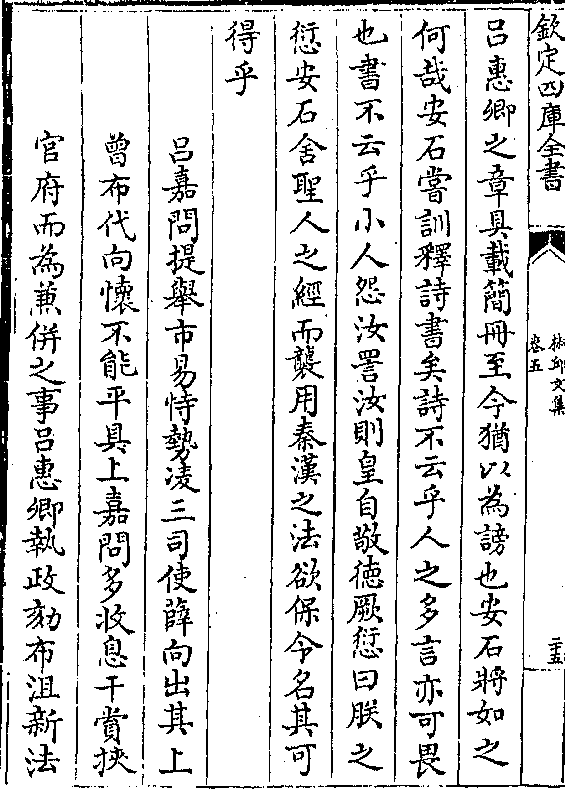 欽定四庫全書
文集
卷五
二十五
吕惠卿之章具載簡冊至今猶以為謗也安石將如之
何哉安石嘗訓釋詩書矣詩不云乎人之多言亦可畏
也書不云乎小人怨汝詈汝則皇自敬徳厥愆曰朕之
愆安石舍聖人之經而襲用秦漢之法欲保令名其可
得乎
吕嘉問提舉市易恃勢凌三司使薛向出其上
曾布代向懐不能平具上嘉問多收息干賞挾
官府而為兼併之事吕惠卿執政劾布沮新法